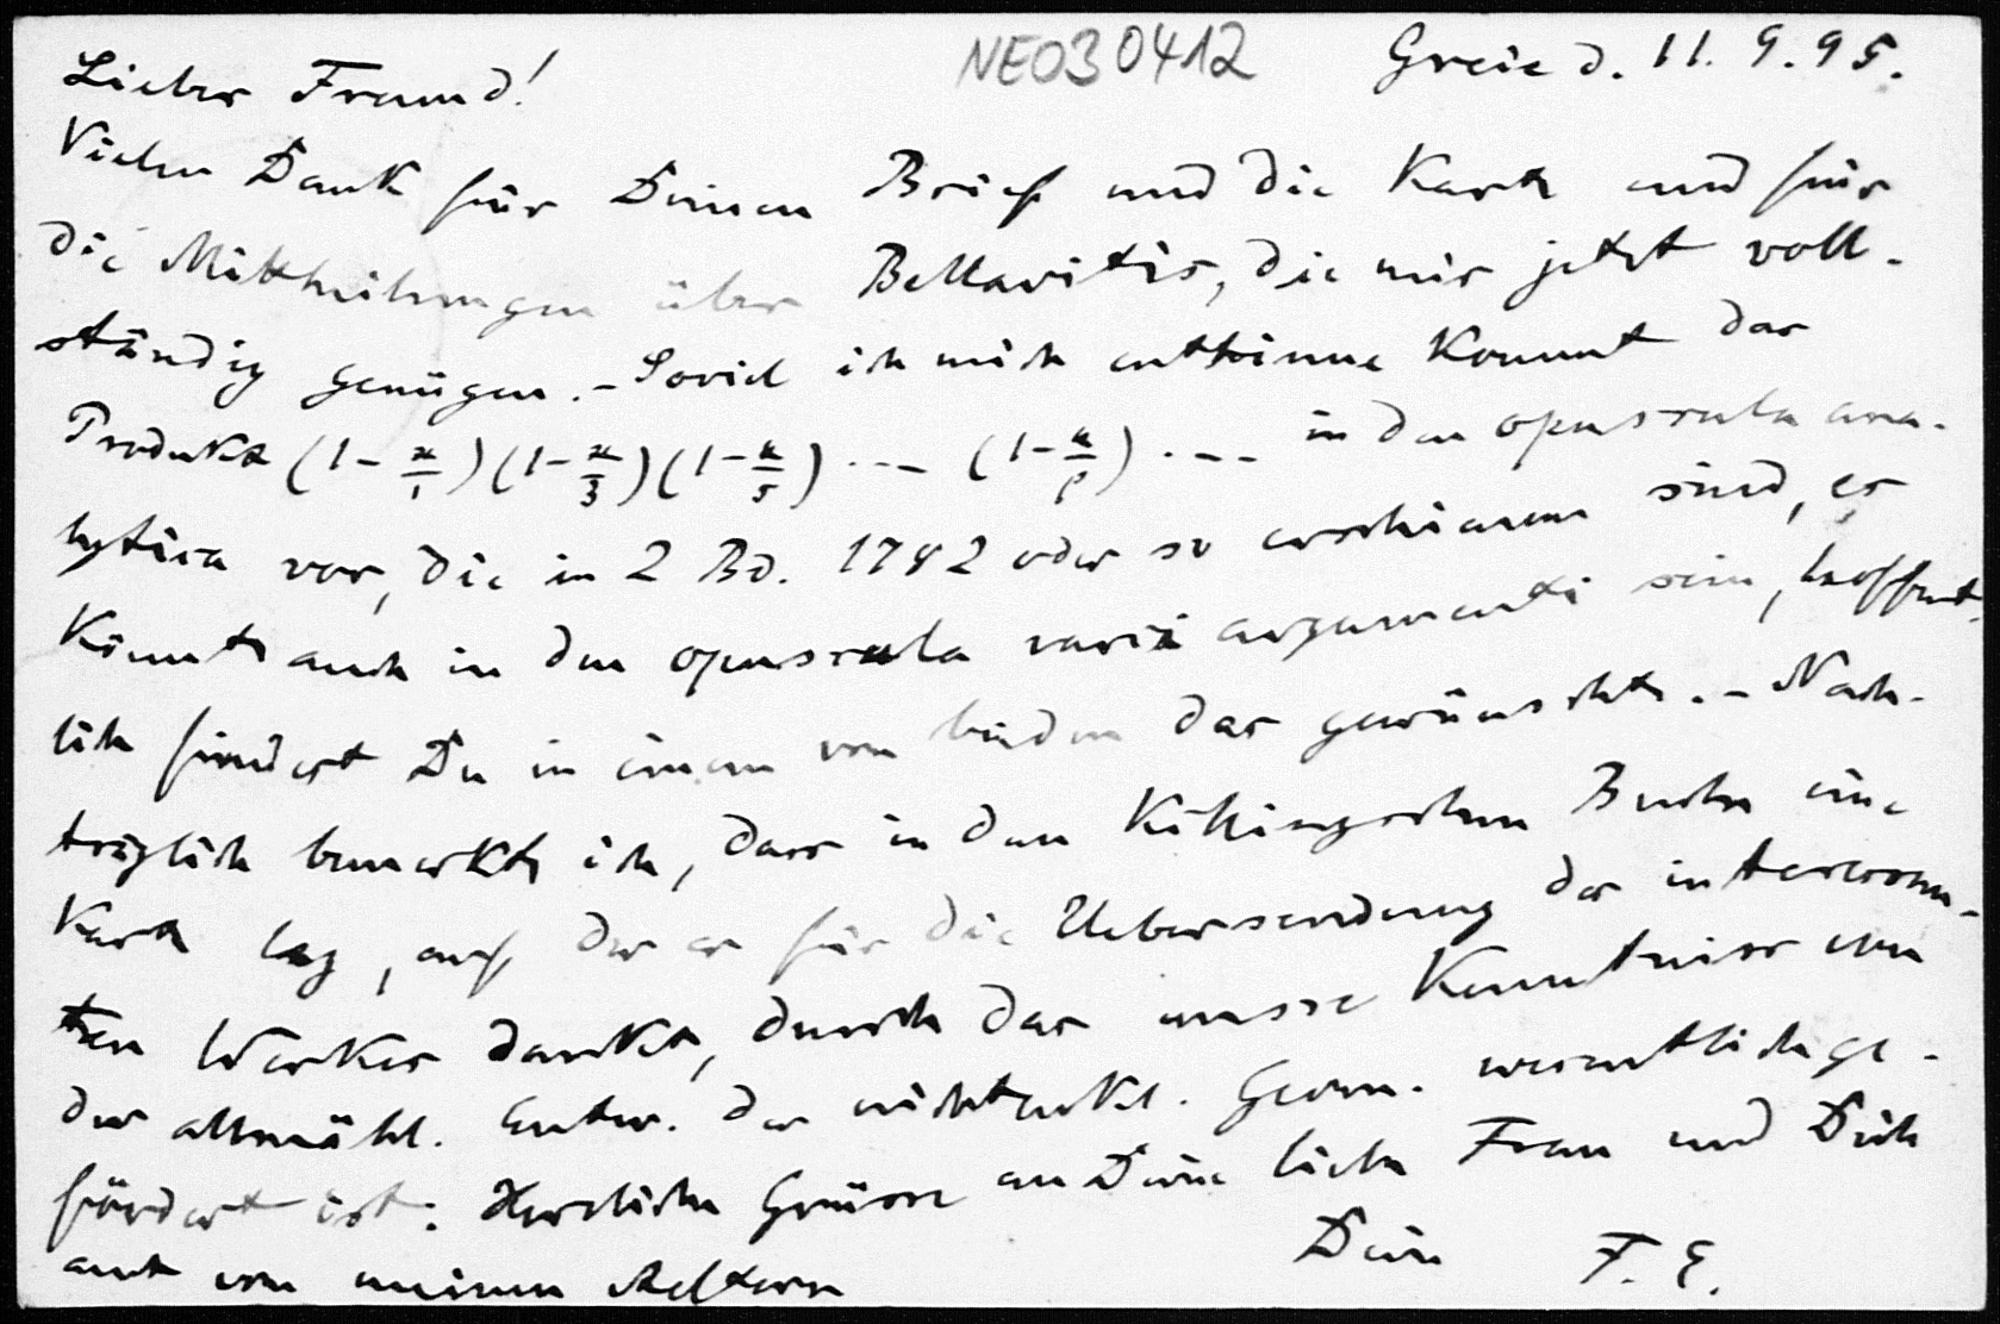 NE030412
Greic d. 11. 9. 95.
Lieber Freund!
Vielen Dank für Deinen Brief und die Karte und für
die Mittheilungen über Bellavitis, die mir jetzt voll-
ständig genügen. – Soviel ich mich entsinne kommt das
Produkt (1 - x/1)(1 - x/3)(1 - x/5) ... (1 - x/p) ... in den opuscula ana-
lytica vor, die in 2 Bd. 1782 oder so erschienen sind, es
könnte auch in den opuscula varii argumenti sein, hoffent-
lich findest Du in einem von beiden das gewünschte. – Nach-
träglich bemerkte ich, dass in dem Killingschen Buche eine
Karte lag, auf der er für die Uebersendung des interessan-
ten Werkes dankte, durch das unsre Kenntniss von
der allmähl. Entw. der nichteukl. Geom. wesentlich ge-
fördert ist. Herzliche Grüsse an Deine liebe Frau und Dich
auch von meinen Aeltern
Dein F. E.